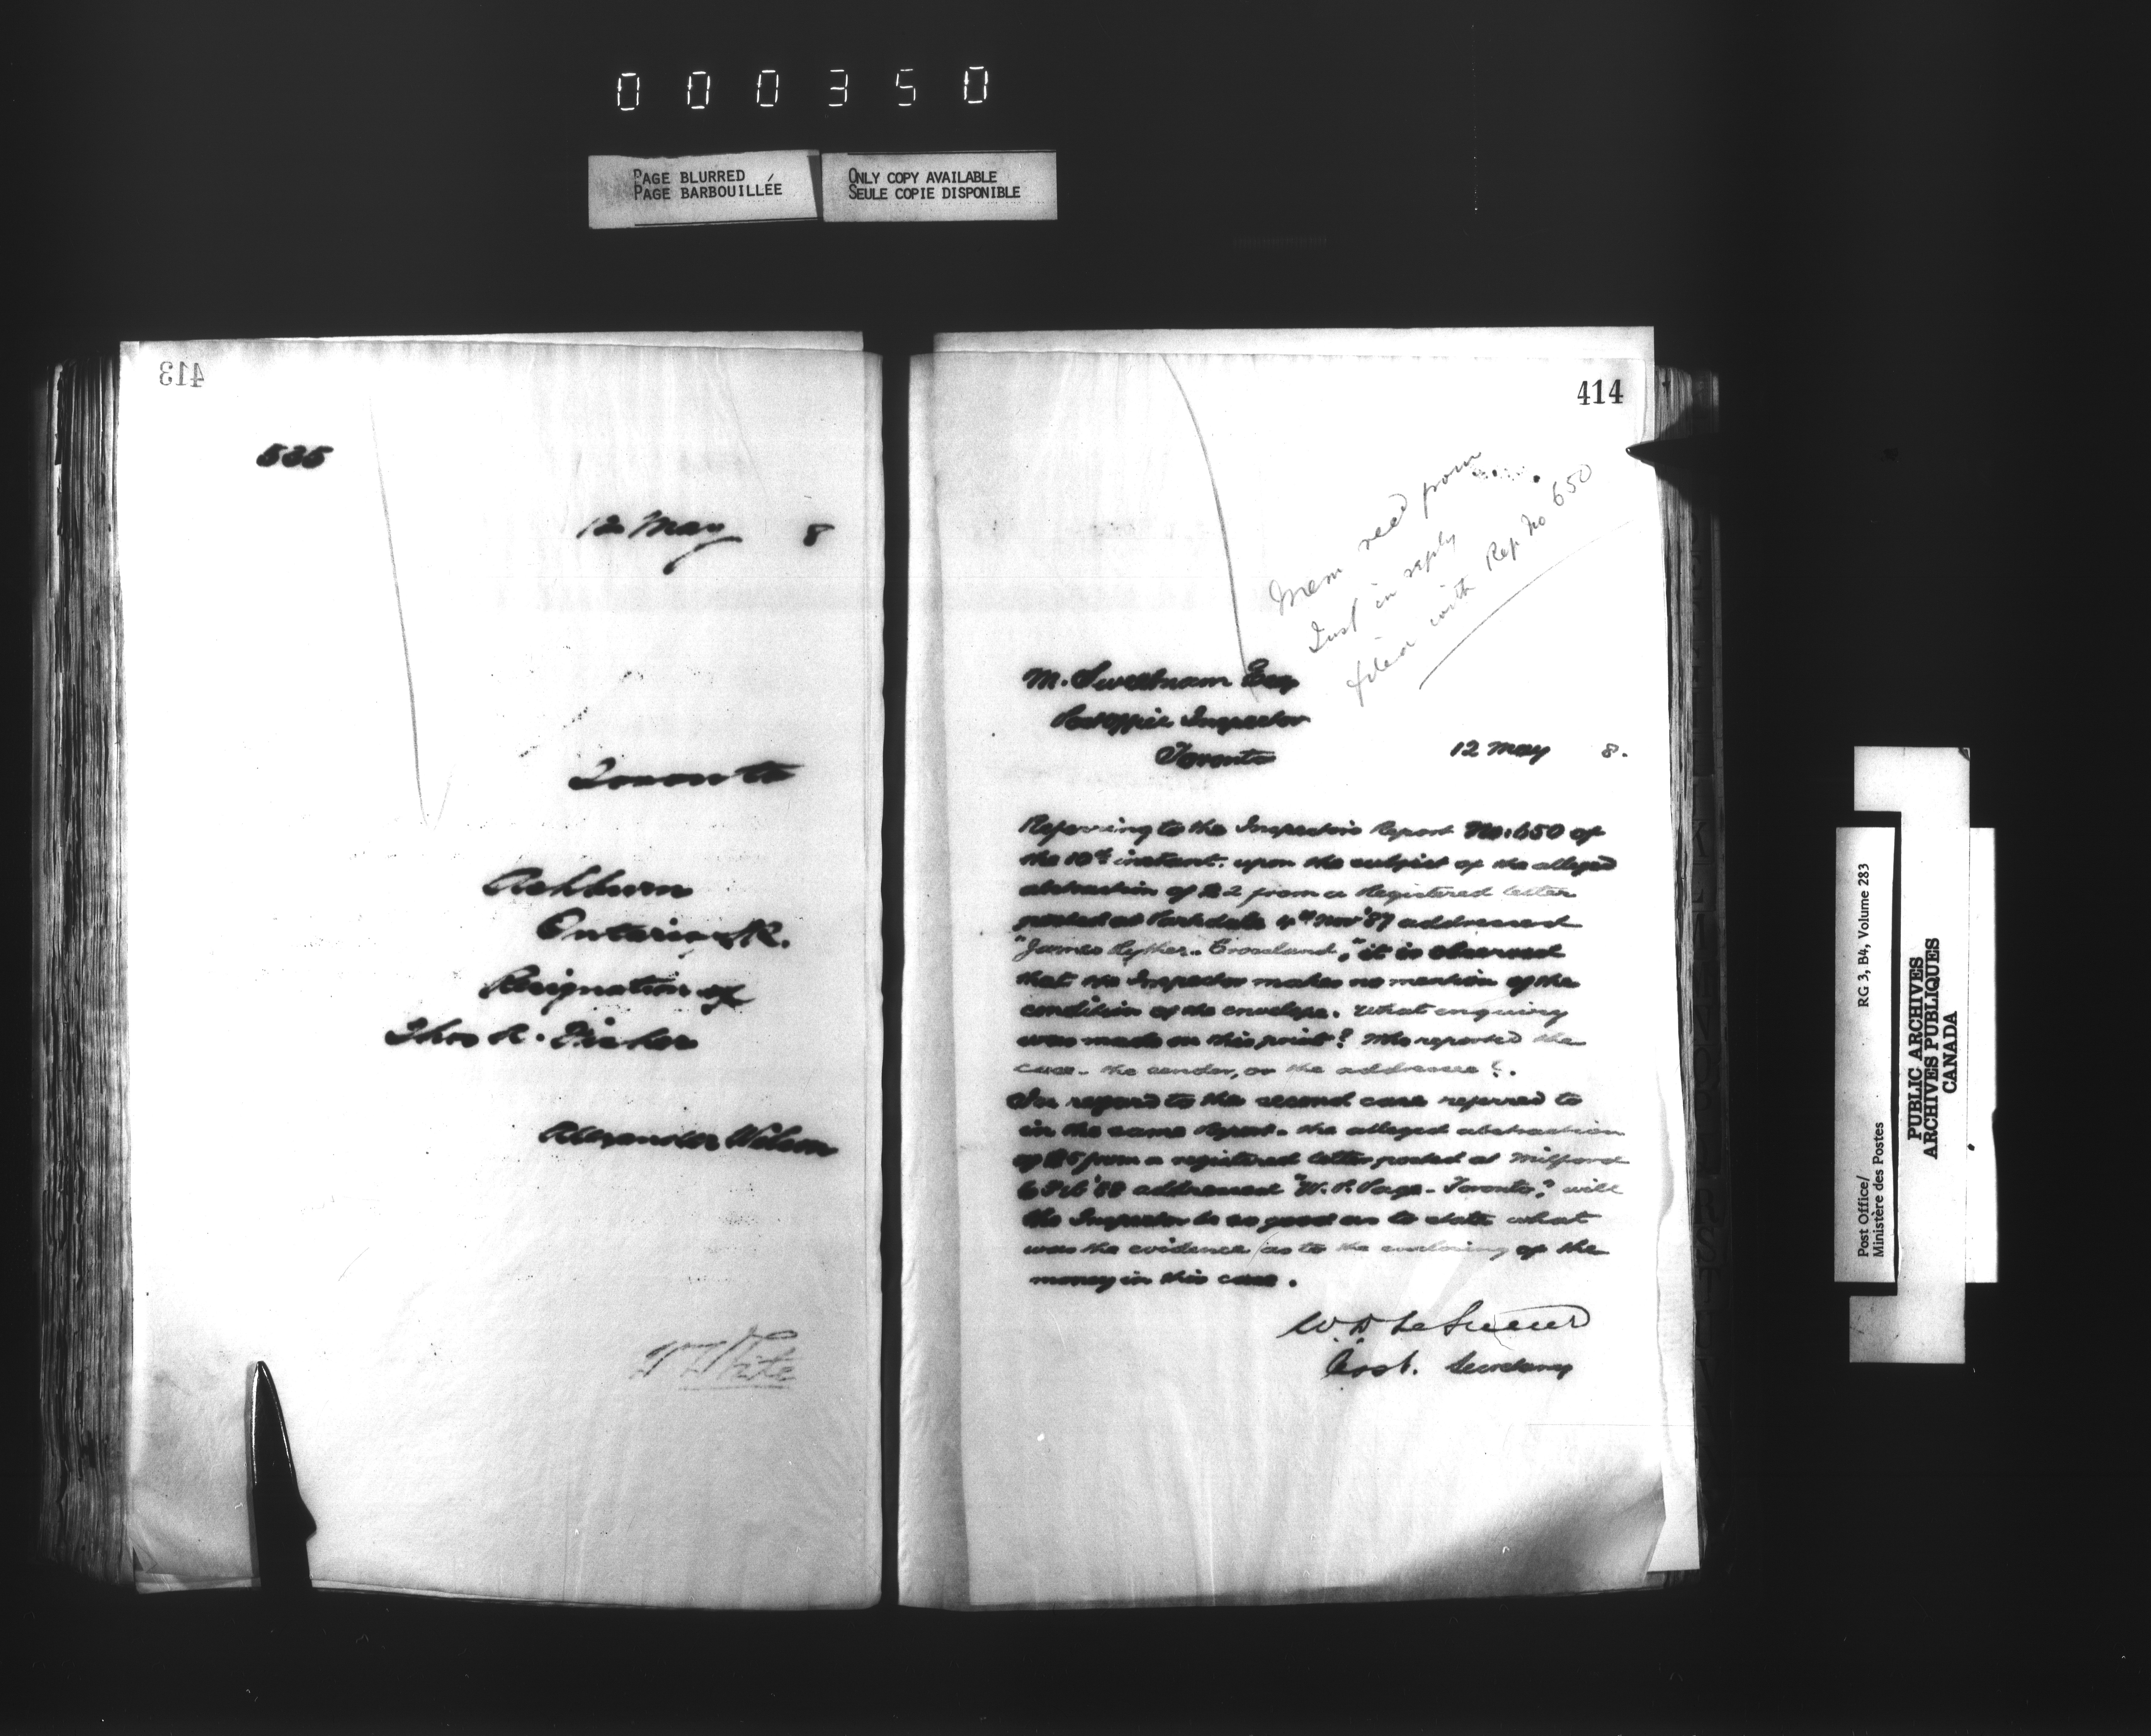 000350
PAGE BLURRED
PAGE BARBOUILLÉE
ONLY COPY AVAILABLE
SEULE COPIE DISPONIBLE
413
535
12 May 8
Toronto
Ashburn
Ontario S.R.
Resignation of
Thos R. Fisher
Alexander Wilson
W White
414
Mem recd from
Insp in reply
filed with Rep No 650
M. Sweetnam Esq
Post Office Inspector
Toronto
12 May 8.
Referring to the Inspector's Report No. 650 of
the 10th instant. upon the subject of the alleged
abstraction of $2 from a Registered letter
posted at Parkdale 4th Nov '87 addressed
"James - Crossland," it is observed
that the Inspector makes no mention of the
condition of the envelope. What enquiry
was made on this point? Who reported the
case - the sender, or the addressee?.
In regard to the second case referred to
in the same Report - the alleged abstraction
of $5 from a registered letter posted at Milford
6 Feb '88 addressed "W. P. Page - Toronto," will
the Inspector be so good as to state what
was the evidence as to the enclosing of the
money in this case.
W D LeSueur
Asst. Secretary
Post Office/
Ministère des Postes
RG 3, B4, Volume 283
PUBLIC ARCHIVES
ARCHIVES PUBLIQUES
CANADA